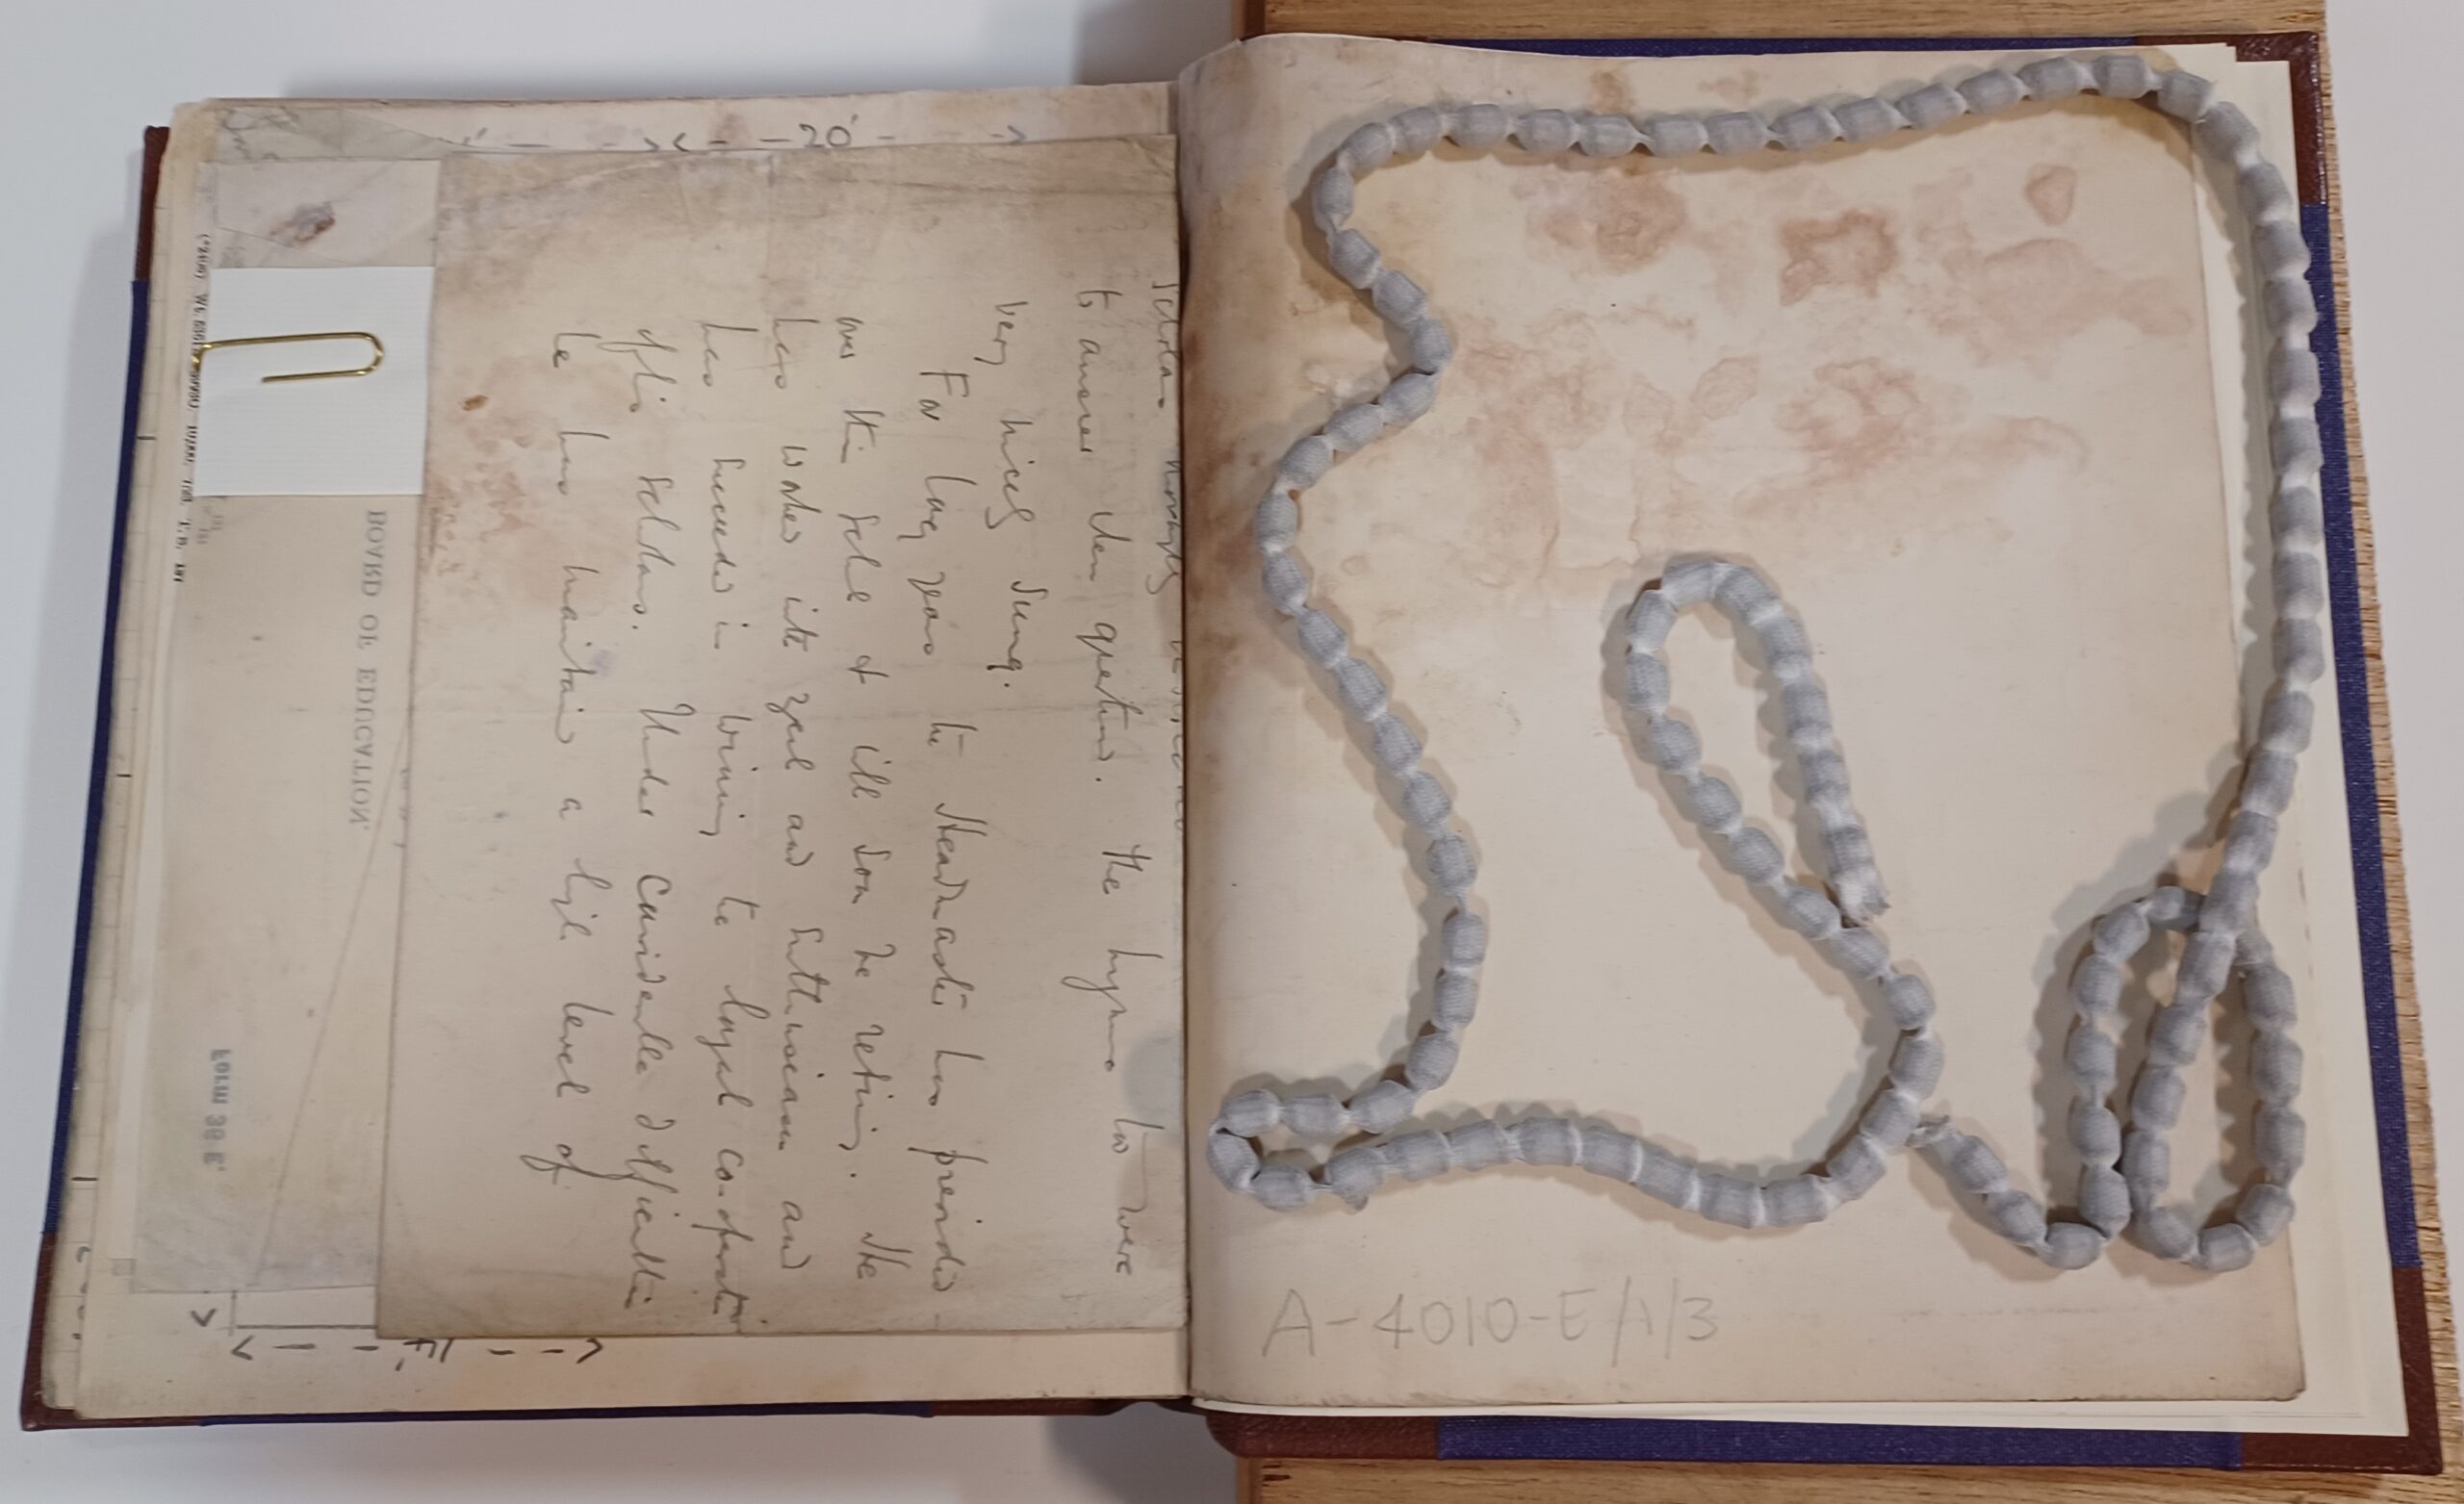 to answer when questioned. The hymns too were
very nicely sung.
For long years the Headmaster has presided
over this School & will soon be retiring. He
has worked with zeal and enthusiasm and
has succeeded in winning the loyal co-operation
of his scholars. Under considerable difficulties
he has maintained a high level of
BOARD OF EDUCATION.
Form 38 E.
<- - 20' - - >
<- - - - - >
A-4010-E/A/3